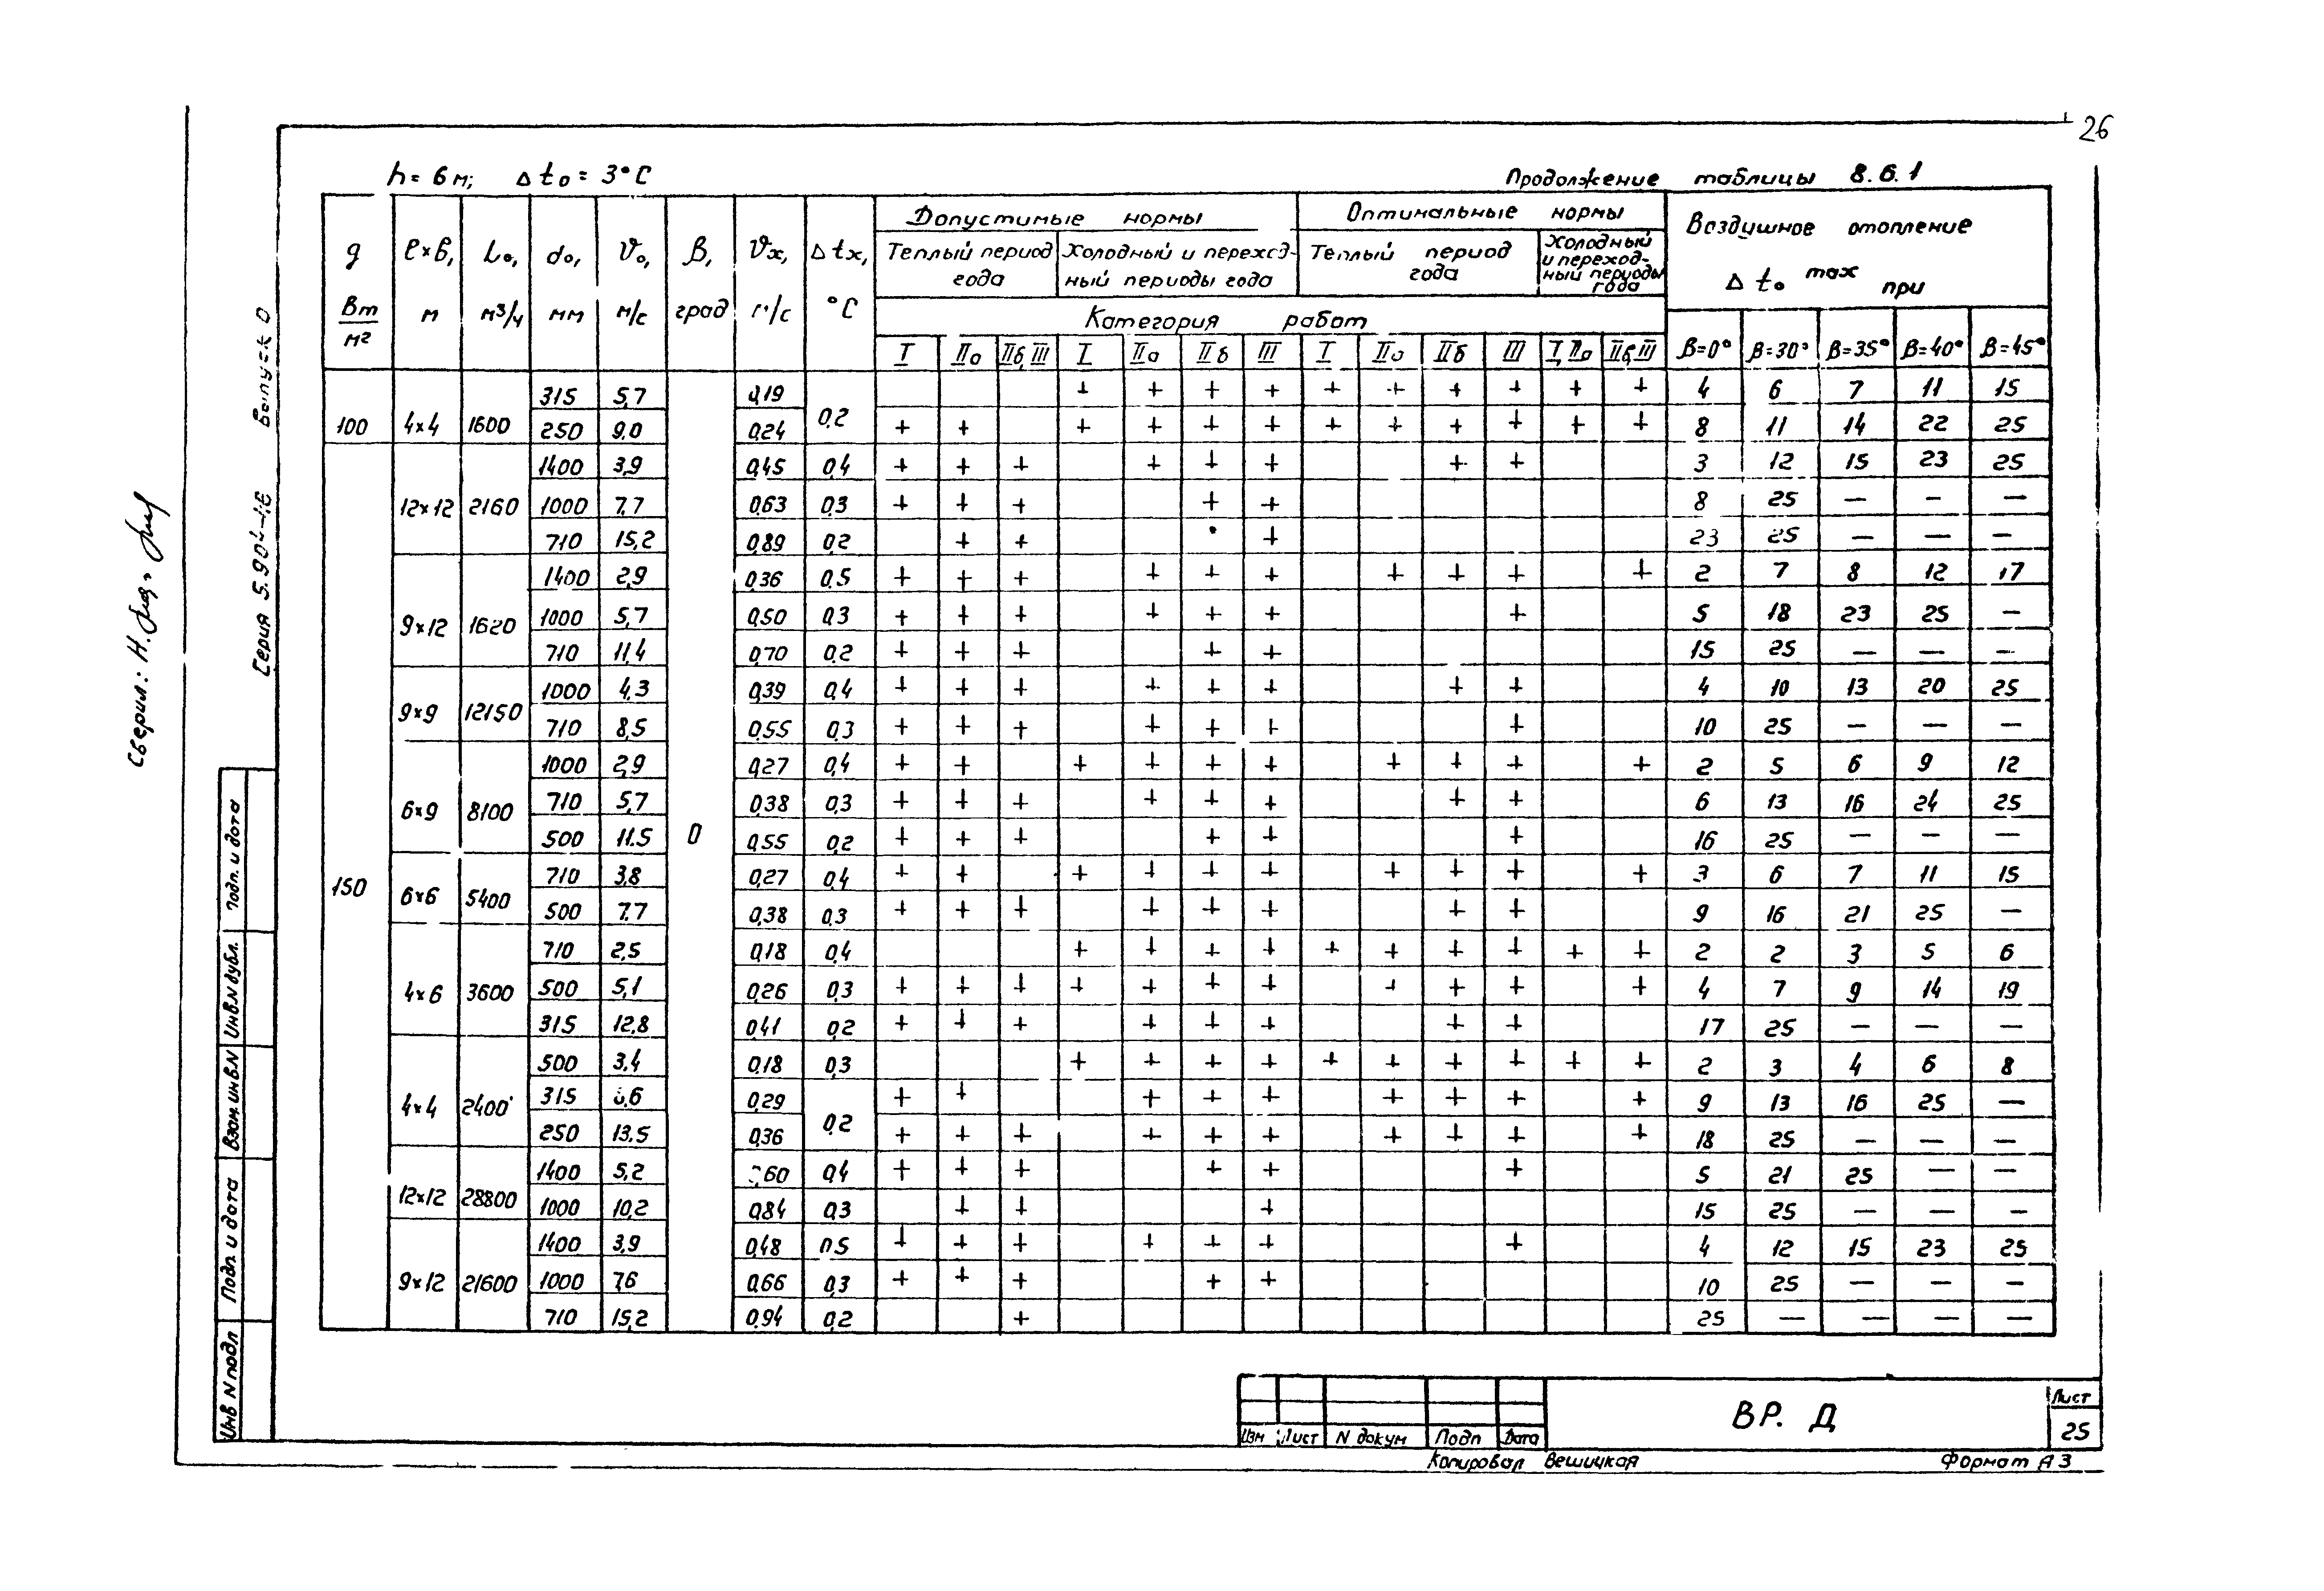 26
h = 6 м; Δ t₀ = 3°C
Продолжение таблицы 8.6.1
q Вт/м² | l×b, м | L₀, м³/ч | d₀, мм | v₀, м/с | β, град | vх, м/с | Δtх, °C | Допустимые нормы | Оптимальные нормы | Воздушное отопление Δ t₀ max при
Теплый период года | Холодный и переходный периоды года | Теплый период года | Холодный и переходный периоды года
Категория работ
I | IIа | IIб, III | I | IIа | IIб | III | I | IIа | IIб | III | I, IIа | IIб, III | β=0° | β=30° | β=35° | β=40° | β=45°
100 | 4×4 | 1600 | 315 | 5,7 | 0 | 0,19 | 0,2 | | | | + | + | + | + | + | + | + | + | + | + | 4 | 6 | 7 | 11 | 15
250 | 9,0 | 0,24 | + | + | | + | + | + | + | + | + | + | + | + | + | 8 | 11 | 14 | 22 | 25
150 | 12×12 | 2160 | 1400 | 3,9 | 0,45 | 0,4 | + | + | + | | + | + | + | | | + | + | | | 3 | 12 | 15 | 23 | 25
1000 | 7,7 | 0,63 | 0,3 | + | + | + | | | + | + | | | | | | | 8 | 25 | — | — | —
710 | 15,2 | 0,89 | 0,2 | | + | + | | | • | + | | | | | | | 23 | 25 | — | — | —
9×12 | 1620 | 1400 | 2,9 | 0,36 | 0,5 | + | + | + | | + | + | + | | + | + | + | | + | 2 | 7 | 8 | 12 | 17
1000 | 5,7 | 0,50 | 0,3 | + | + | + | | + | + | + | | | | + | | | 5 | 18 | 23 | 25 | —
710 | 11,4 | 0,70 | 0,2 | + | + | + | | | + | + | | | | | | | 15 | 25 | — | — | —
9×9 | 12150 | 1000 | 4,3 | 0,39 | 0,4 | + | + | + | | + | + | + | | | + | + | | | 4 | 10 | 13 | 20 | 25
710 | 8,5 | 0,55 | 0,3 | + | + | + | | + | + | + | | | | + | | | 10 | 25 | — | — | —
6×9 | 8100 | 1000 | 2,9 | 0,27 | 0,4 | + | + | | + | + | + | + | | + | + | + | | + | 2 | 5 | 6 | 9 | 12
710 | 5,7 | 0,38 | 0,3 | + | + | + | | + | + | + | | | + | + | | | 6 | 13 | 16 | 24 | 25
500 | 11.5 | 0,55 | 0,2 | + | + | + | | | + | + | | | | + | | | 16 | 25 | — | — | —
6×6 | 5400 | 710 | 3,8 | 0,27 | 0,4 | + | + | | + | + | + | + | | + | + | + | | + | 3 | 6 | 7 | 11 | 15
500 | 7.7 | 0,38 | 0,3 | + | + | + | | + | + | + | | | + | + | | | 9 | 16 | 21 | 25 | —
4×6 | 3600 | 710 | 2,5 | 0,18 | 0,4 | | | | + | + | + | + | + | + | + | + | + | + | 2 | 2 | 3 | 5 | 6
500 | 5,1 | 0,26 | 0,3 | + | + | + | + | + | + | + | | + | + | + | | + | 4 | 7 | 9 | 14 | 19
315 | 12,8 | 0,41 | 0,2 | + | + | + | | + | + | + | | | + | + | | | 17 | 25 | — | — | —
4×4 | 2400 | 500 | 3,4 | 0,18 | 0,3 | | | | + | + | + | + | + | + | + | + | + | + | 2 | 3 | 4 | 6 | 8
315 | 0,29 | 0,2 | + | + | | | + | + | + | | + | + | + | | + | 9 | 13 | 16 | 25 | —
250 | 13,5 | 0,36 | + | + | + | | + | + | + | | + | + | + | | + | 18 | 25 | — | — | —
12×12 | 28800 | 1400 | 5,2 | 0,60 | 0,4 | + | + | + | | | + | + | | | | + | | | 5 | 21 | 25 | — | —
1000 | 10,2 | 0,84 | 0,3 | | + | + | | | | + | | | | | | | 15 | 25 | — | — | —
9×12 | 21600 | 1400 | 3,9 | 0,48 | 0,5 | + | + | + | | + | + | + | | | | + | | | 4 | 12 | 15 | 23 | 25
1000 | 7,6 | 0,66 | 0,3 | + | + | + | | | + | + | | | | | | | 10 | 25 | — | — | —
710 | 15,2 | 0,94 | 0,2 | | | + | | | | | | | | | | | 25 | — | — | — | —
Сверил: Н.
Серия 5.904 Выпуск 0
Подп. и дата
Инв N дубл.
Взам. инв. N
Подп. и дата
Инв N подл
Изм Лист N докум Подп Дата
ВР. Д
Лист
25
Копировал Вешицкая
Формат А3